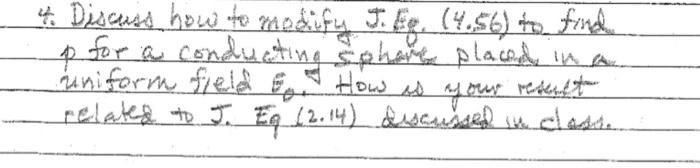 4. Discuss how to modify J. Eq. (4.56) to find
p for a conducting sphere placed in a
uniform field E₀. How is your result
related to J. Eq (2.14) discussed in class.